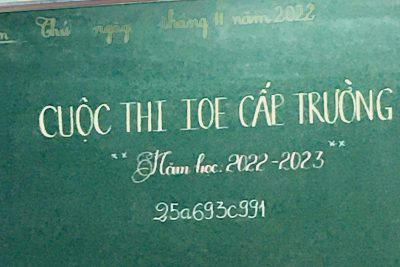 Thứ ngày tháng 11 năm 2022
CUỘC THI IOE CẤP TRƯỜNG
Năm học: 2022-2023
25a693c991